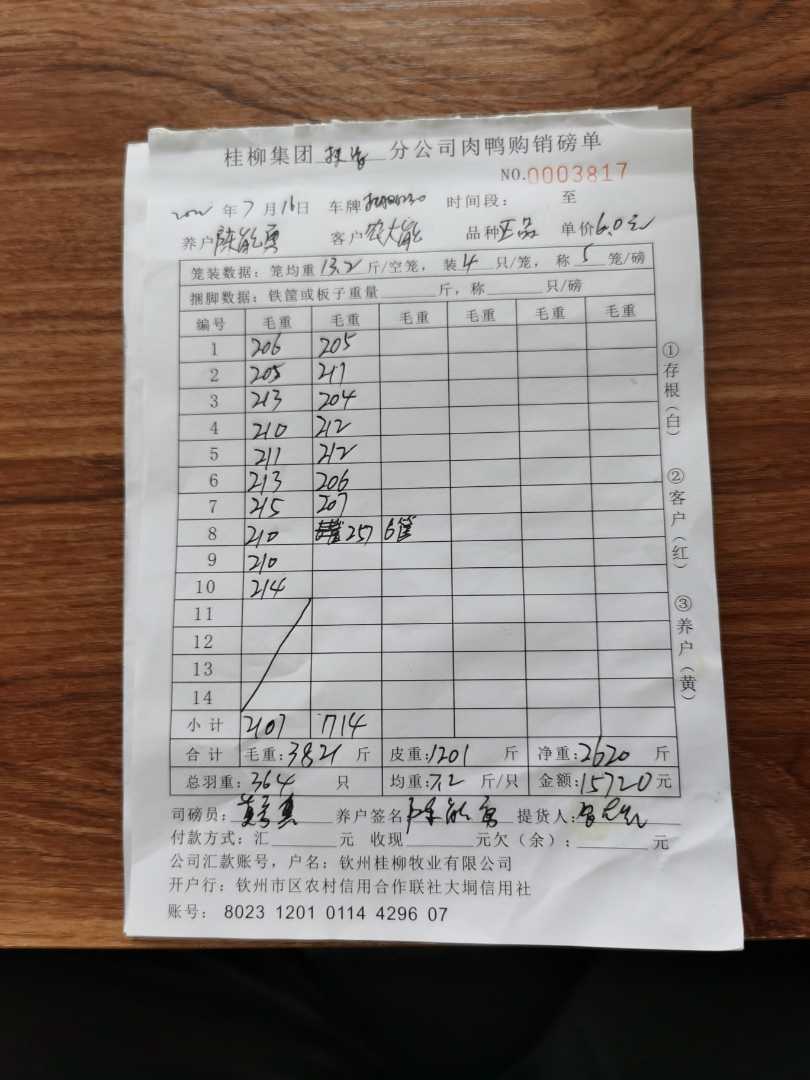 桂柳集团 分公司肉鸭购销磅单
NO.0003817
年7月16日 车牌 时间段: 至
养户 客户农大能 品种正品 单价6.0元
笼装数据: 笼均重13.2斤/空笼, 装4只/笼, 称5笼/磅
捆脚数据: 铁筐或板子重量 斤, 称 只/磅
编号 毛重 毛重 毛重 毛重 毛重 毛重
1 206 205
2 205 211
3 213 204
4 210 212
5 211 212
6 213 206
7 215 207
8 210 257 6笼
9 210
10 214
11
12
13
14
小计 2107 1714
合计 毛重:3821斤 皮重:1201斤 净重:2620斤
总羽重:364只 均重:7.2斤/只 金额:15720元
司磅员: 养户签名 提货人:
付款方式: 汇 元 收现 元欠(余): 元
公司汇款账号, 户名: 钦州桂柳牧业有限公司
开户行: 钦州市区农村信用合作联社大垌信用社
账号: 8023 1201 0114 4296 07
①存根(白) ②客户(红) ③养户(黄)